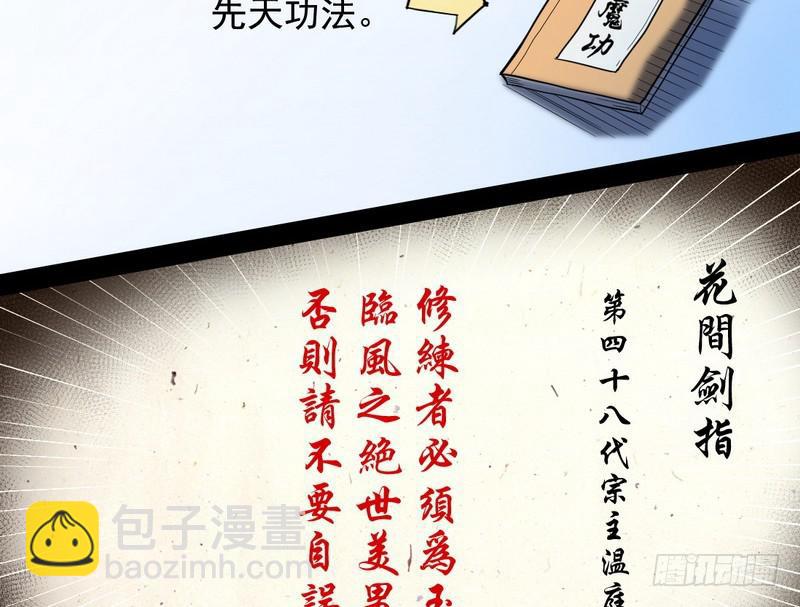 先天功法。
魔功
花間劍指
第四十八代宗主溫庭
修練者必須為玉
臨風之絕世美男
否則請不要自誤
包子漫畫
baozimh.com
腾讯动漫